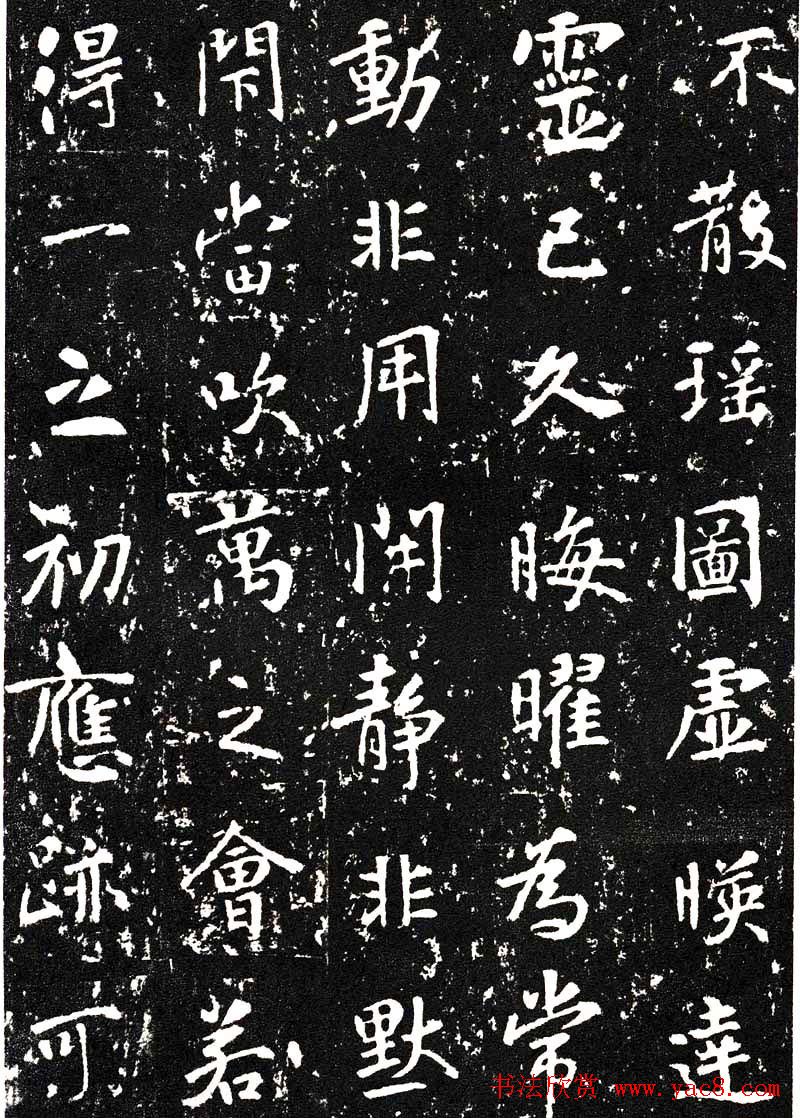 不散瑶圖虚暎達
靈已久晦曜為常
動非用開静非默
閇當吹萬之會若
得一之初應跡可
书法欣赏 www.yac8.com